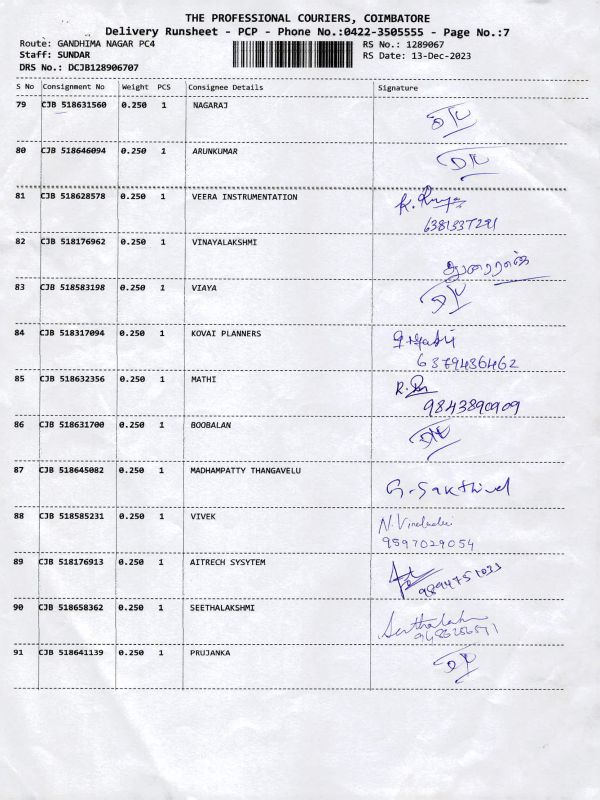 THE PROFESSIONAL COURIERS, COIMBATORE
Delivery Runsheet - PCP - Phone No.:0422-3505555 - Page No.:7
Route: GANDHIMA NAGAR PC4 RS No.: 1289067
Staff: SUNDAR RS Date: 13-Dec-2023
DRS No.: DCJB128906707
S No Consignment No Weight PCS Consignee Details Signature
79 CJB 518631560 0.250 1 NAGARAJ
80 CJB 518646094 0.250 1 ARUNKUMAR
81 CJB 518628578 0.250 1 VEERA INSTRUMENTATION
6381337291
82 CJB 518176962 0.250 1 VINAYALAKSHMI
83 CJB 518583198 0.250 1 VIAYA
84 CJB 518317094 0.250 1 KOVAI PLANNERS
6379436462
85 CJB 518632356 0.250 1 MATHI
9843890909
86 CJB 518631700 0.250 1 BOOBALAN
87 CJB 518645082 0.250 1 MADHAMPATTY THANGAVELU
G. Sakthivel
88 CJB 518585231 0.250 1 VIVEK
9597029054
89 CJB 518176913 0.250 1 AITRECH SYSYTEM
9894751033
90 CJB 518658362 0.250 1 SEETHALAKSHMI
91 CJB 518641139 0.250 1 PRUJANKA